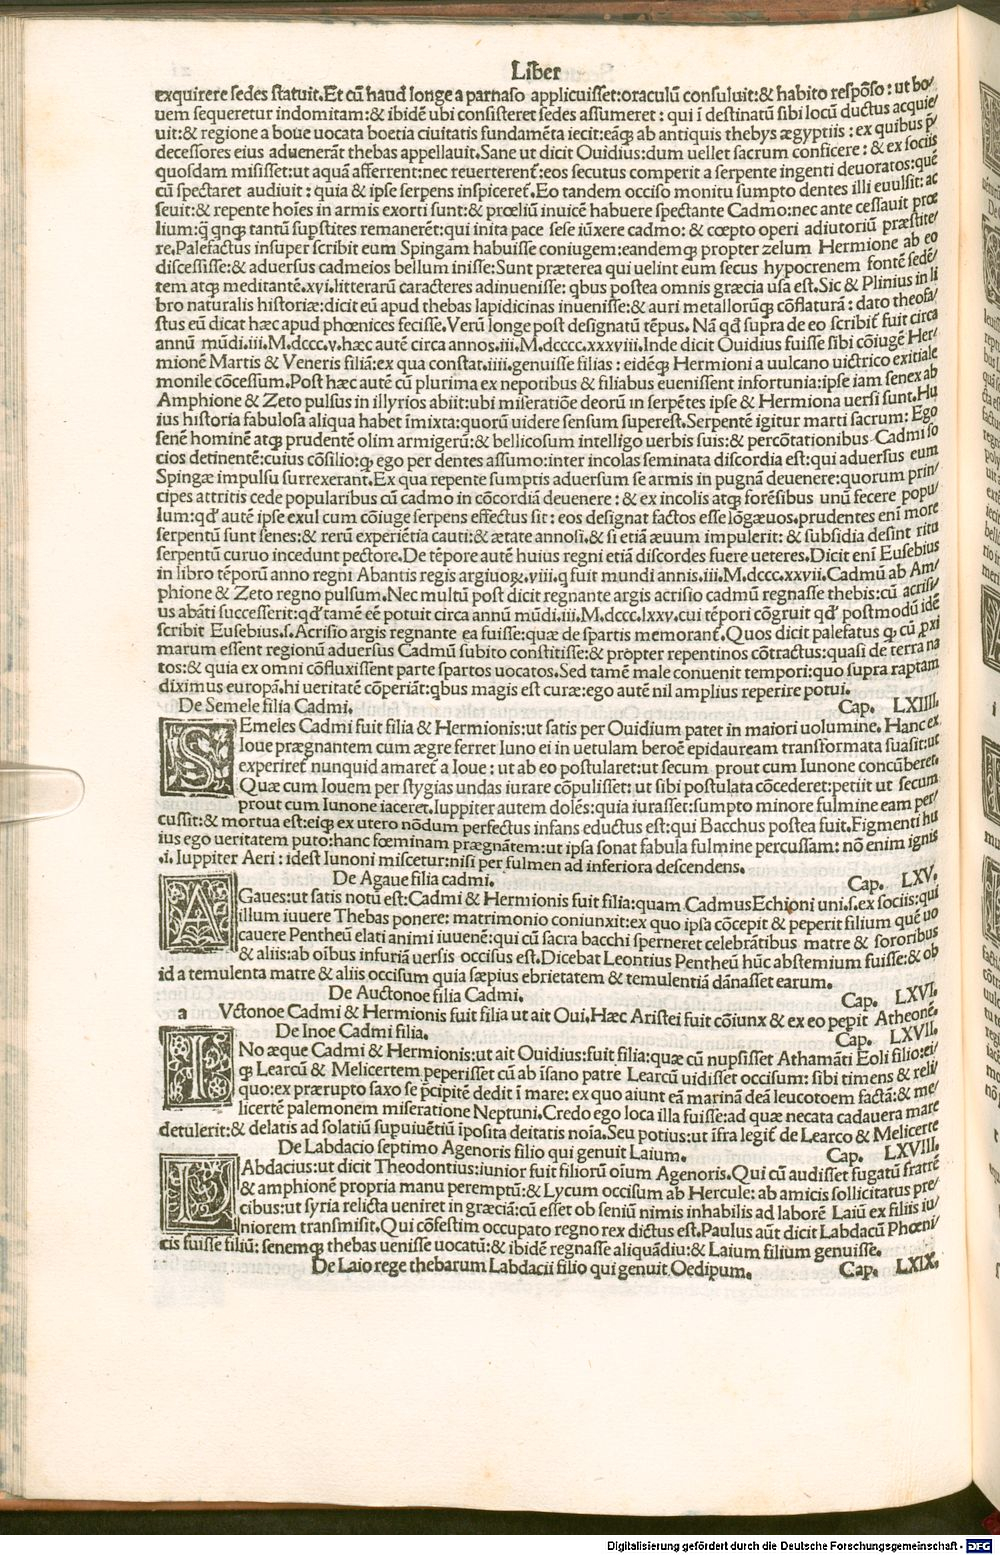 Liber
exquirere sedes statuit.Et cū haud longe a parnaso applicuisset:oraculū consuluit:& habito respōso: ut bo/
uem sequeretur indomitam:& ibidē ubi consisteret sedes assumeret: qui ī destinatū sibi locū ductus acquie/
uit:& regione a boue uocata boetia ciuitatis fundamēta iecit:eāq; ab antiquis thebys ægyptiis: ex quibus p̄/
decessores eius aduenerāt thebas appellauit.Sane ut dicit Ouidius:dum uellet sacrum conficere: & ex sociis
quosdam misisset:ut aquā afferrent:nec reuerterent᷑:eos secutus comperit a serpente ingenti deuoratos:quē
cū spectaret audiuit: quia & ipse serpens inspiceret᷑.Eo tandem occiso monitu sumpto dentes illi euulsit: ac
seuit:& repente hoīes in armis exorti sunt:& prœlium inuicē habuere spectante Cadmo:nec ante cessauit prœ
lium:q̄ qnq; tantū supstites remanerēt:qui inita pace sese iūxere cadmo: & cœpto operi adiutoriū præstite/
re.Palefactus insuper scribit eum Spingam habuisse coniugem:eandemq; propter zelum Hermione ab eo
discessisse:& aduersus cadmeios bellum inisse:Sunt præterea qui uelint eum secus hypocrenem fontē sedē/
tem atq; meditantē.xvi.litterarū caracteres adinuenisse: qbus postea omnis græcia usa est.Sic & Plinius in li
bro naturalis historiæ:dicit eū apud thebas lapidicinas inuenisse:& auri metallorūq; cōflaturā: dato theofa/
stus eū dicat hæc apud phœnices fecisse.Verū longe post designatū tēpus. Nā qd̄ supra de eo scribit᷑ fuit circa
annū mūdi.iii.M.dccc.v.hæc autē circa annos.iii.M.dcccc.xxxviii.Inde dicit Ouidius fuisse sibi cōiugē Her/
mionē Martis & Veneris filiā:ex qua constat.iiii.genuisse filias: eidēq; Hermioni a uulcano uictrico exitiale
monile cōcessum.Post hæc autē cū plurima ex nepotibus & filiabus euenissent infortunia:ipse iam senex ab
Amphione & Zeto pulsus in illyrios abiit:ubi miseratiōe deorū ın serpētes ipse & Hermiona uersi sunt.Hu
ius historia fabulosa aliqua habet īmixta:quorū uidere sensum superest.Serpentē igitur marti sacrum: Ego
senē hominē atq; prudentē olim armigerū:& bellicosum intelligo uerbis suis:& percōtationibus Cadmi so
cios detinentē:cuius cōsilio:q; ego per dentes assumo:inter incolas seminata discordia est:qui aduersus eum
Spingæ impulsu surrexerant.Ex qua repente sumptis aduersum se armis in pugnā deuenere:quorum prin/
cipes attritis cede popularibus cū cadmo in cōcordiā deuenere: & ex incolis atq; forēsibus unū fecere popu/
lum:qd̄ autē ipse exul cum cōiuge serpens effectus sit: eos designat factos esse lōgæuos.prudentes enī more
serpentū sunt senes:& rerū experiētia cauti:& ætate annosi.& si etiā æuum impulerit: & subsidia desint ritu
serpentū curuo incedunt pectore.De tēpore autē huius regni etiā discordes fuere ueteres.Dicit enī Eusebius
in libro tēporū anno regni Abantis regis argiuoꝝ.viii.q fuit mundi annis.iii.M.dccc.xxvii.Cadmū ab Am/
phione & Zeto regno pulsum.Nec multū post dicit regnante argis acrisio cadmū regnasse thebis:cū acrisi/
us abāti successerit:qd̄ tamē eē potuit circa annū mūdi.iii.M.dccc.lxxv.cui tēpori cōgruit qd̄ postmodū idē
scribit Eusebius.s.Acrisio argis regnante ea fuisse:quæ de spartis memorant᷑.Quos dicit palefatus q; cū ꝓxi
marum essent regionū aduersus Cadmū subito constitisse:& propter repentinos cōtractus:quasi de terra na
tos:& quia ex omni cōfluxissent parte spartos uocatos.Sed tamē male conuenit tempori:quo supra raptam
diximus europā.hi ueritatē cōperiāt:qbus magis est curæ:ego autē nil amplius reperire potui.
De Semele filia Cadmi. Cap. LXIIII.
SEmeles Cadmi fuit filia & Hermionis:ut satis per Ouidium patet in maiori uolumine. Hanc ex
Ioue prægnantem cum ægre ferret Iuno ei in uetulam beroē epidauream transformata suasit:ut
experiret᷑ nunquid amaret᷑ a Ioue: ut ab eo postularet:ut secum prout cum Iunone concūberet.
Quæ cum Iouem per stygias undas iurare cōpulisset: ut sibi postulata cōcederet:petiit ut secum
prout cum Iunone iaceret.Iuppiter autem dolēs:quia iurasset:sumpto minore fulmine eam per/
cussit:& mortua est:eiq; ex utero nōdum perfectus infans eductus est:qui Bacchus postea fuit.Figmenti hu
ius ego ueritatem puto:hanc fœminam prægnātem:ut ipsa sonat fabula fulmine percussam: nō enim ignis
.i. Iuppiter Aeri: idest Iunoni miscetur:nisi per fulmen ad inferiora descendens.
De Agaue filia cadmi. Cap. LXV.
AGaues:ut satis notū est:Cadmi & Hermionis fuit filia:quam Cadmus Echioni uni.s.ex sociis:qui
illum iuuere Thebas ponere: matrimonio coniunxit:ex quo ipsa cōcepit & peperit filium quē uo
cauere Pentheū elati animi iuuenē:qui cū sacra bacchi sperneret celebrātibus matre & sororibus
& aliis:ab oībus infuriā uersis occisus est.Dicebat Leontius Pentheū hūc abstemium fuisse:& ob
id a temulenta matre & aliis occisum quia sæpius ebrietatem & temulentiā dānasset earum.
De Auctonoe filia Cadmi. Cap. LXVI.
a VCtonoe Cadmi & Hermionis fuit filia ut ait Oui.Hæc Aristei fuit cōiunx & ex eo pepit Atheonē.
De Inoe Cadmi filia. Cap. LXVII.
INo æque Cadmi & Hermionis:ut ait Ouidius:fuit filia:quæ cū nupsisset Athamāti Eoli filio:ei/
q; Learcū & Melicertem peperisset cū ab īsano patre Learcū uidisset occisum: sibi timens & reli/
quo:ex prærupto saxo se p̄cipitē dedit ī mare: ex quo aiunt eā marinā deā leucotoem factā:& me/
licertē palemonem miseratione Neptuni.Credo ego loca illa fuisse:ad quæ necata cadauera mare
detulerit:& delatis ad solatiū supuiuētiū īposita deitatis noīa.Seu potius:ut īfra legit᷑ de Learco & Melicerte
De Labdacio septimo Agenoris filio qui genuit Laium. Cap. LXVIII.
LAbdacius:ut dicit Theodontius:iunior fuit filiorū oīum Agenoris.Qui cū audisset fugatū fratrē
& amphionē propria manu peremptū:& Lycum occisum ab Hercule: ab amicis sollicitatus pre/
cibus:ut syria relicta ueniret in græciā:cū esset ob seniū nimis inhabilis ad laborē Laiū ex filiis iu/
niorem transmisit.Qui cōfestim occupato regno rex dictus est.Paulus aūt dicit Labdacū Phœni/
cis fuisse filiū: senemq; thebas uenisse uocatū:& ibidē regnasse aliquādiu:& Laium filium genuisse.
De Laio rege thebarum Labdacii filio qui genuit Oedipum. Cap. LXIX.
Digitalisierung gefördert durch die Deutsche Forschungsgemeinschaft - DFG